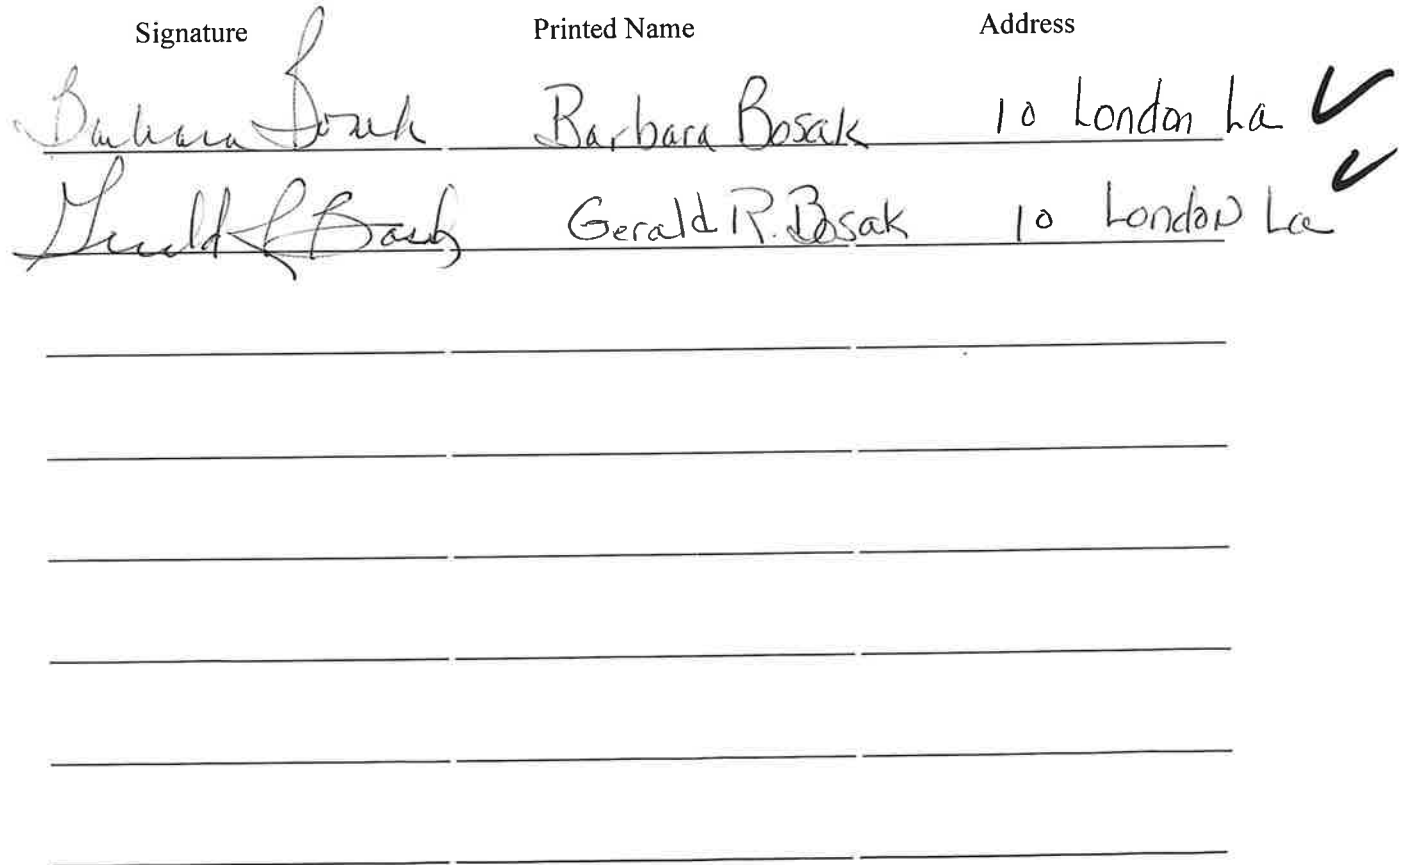 Signature Printed Name Address
Barbara Bosak Barbara Bosak 10 London La ✓
Gerald R Bosak Gerald R. Bosak 10 London La ✓